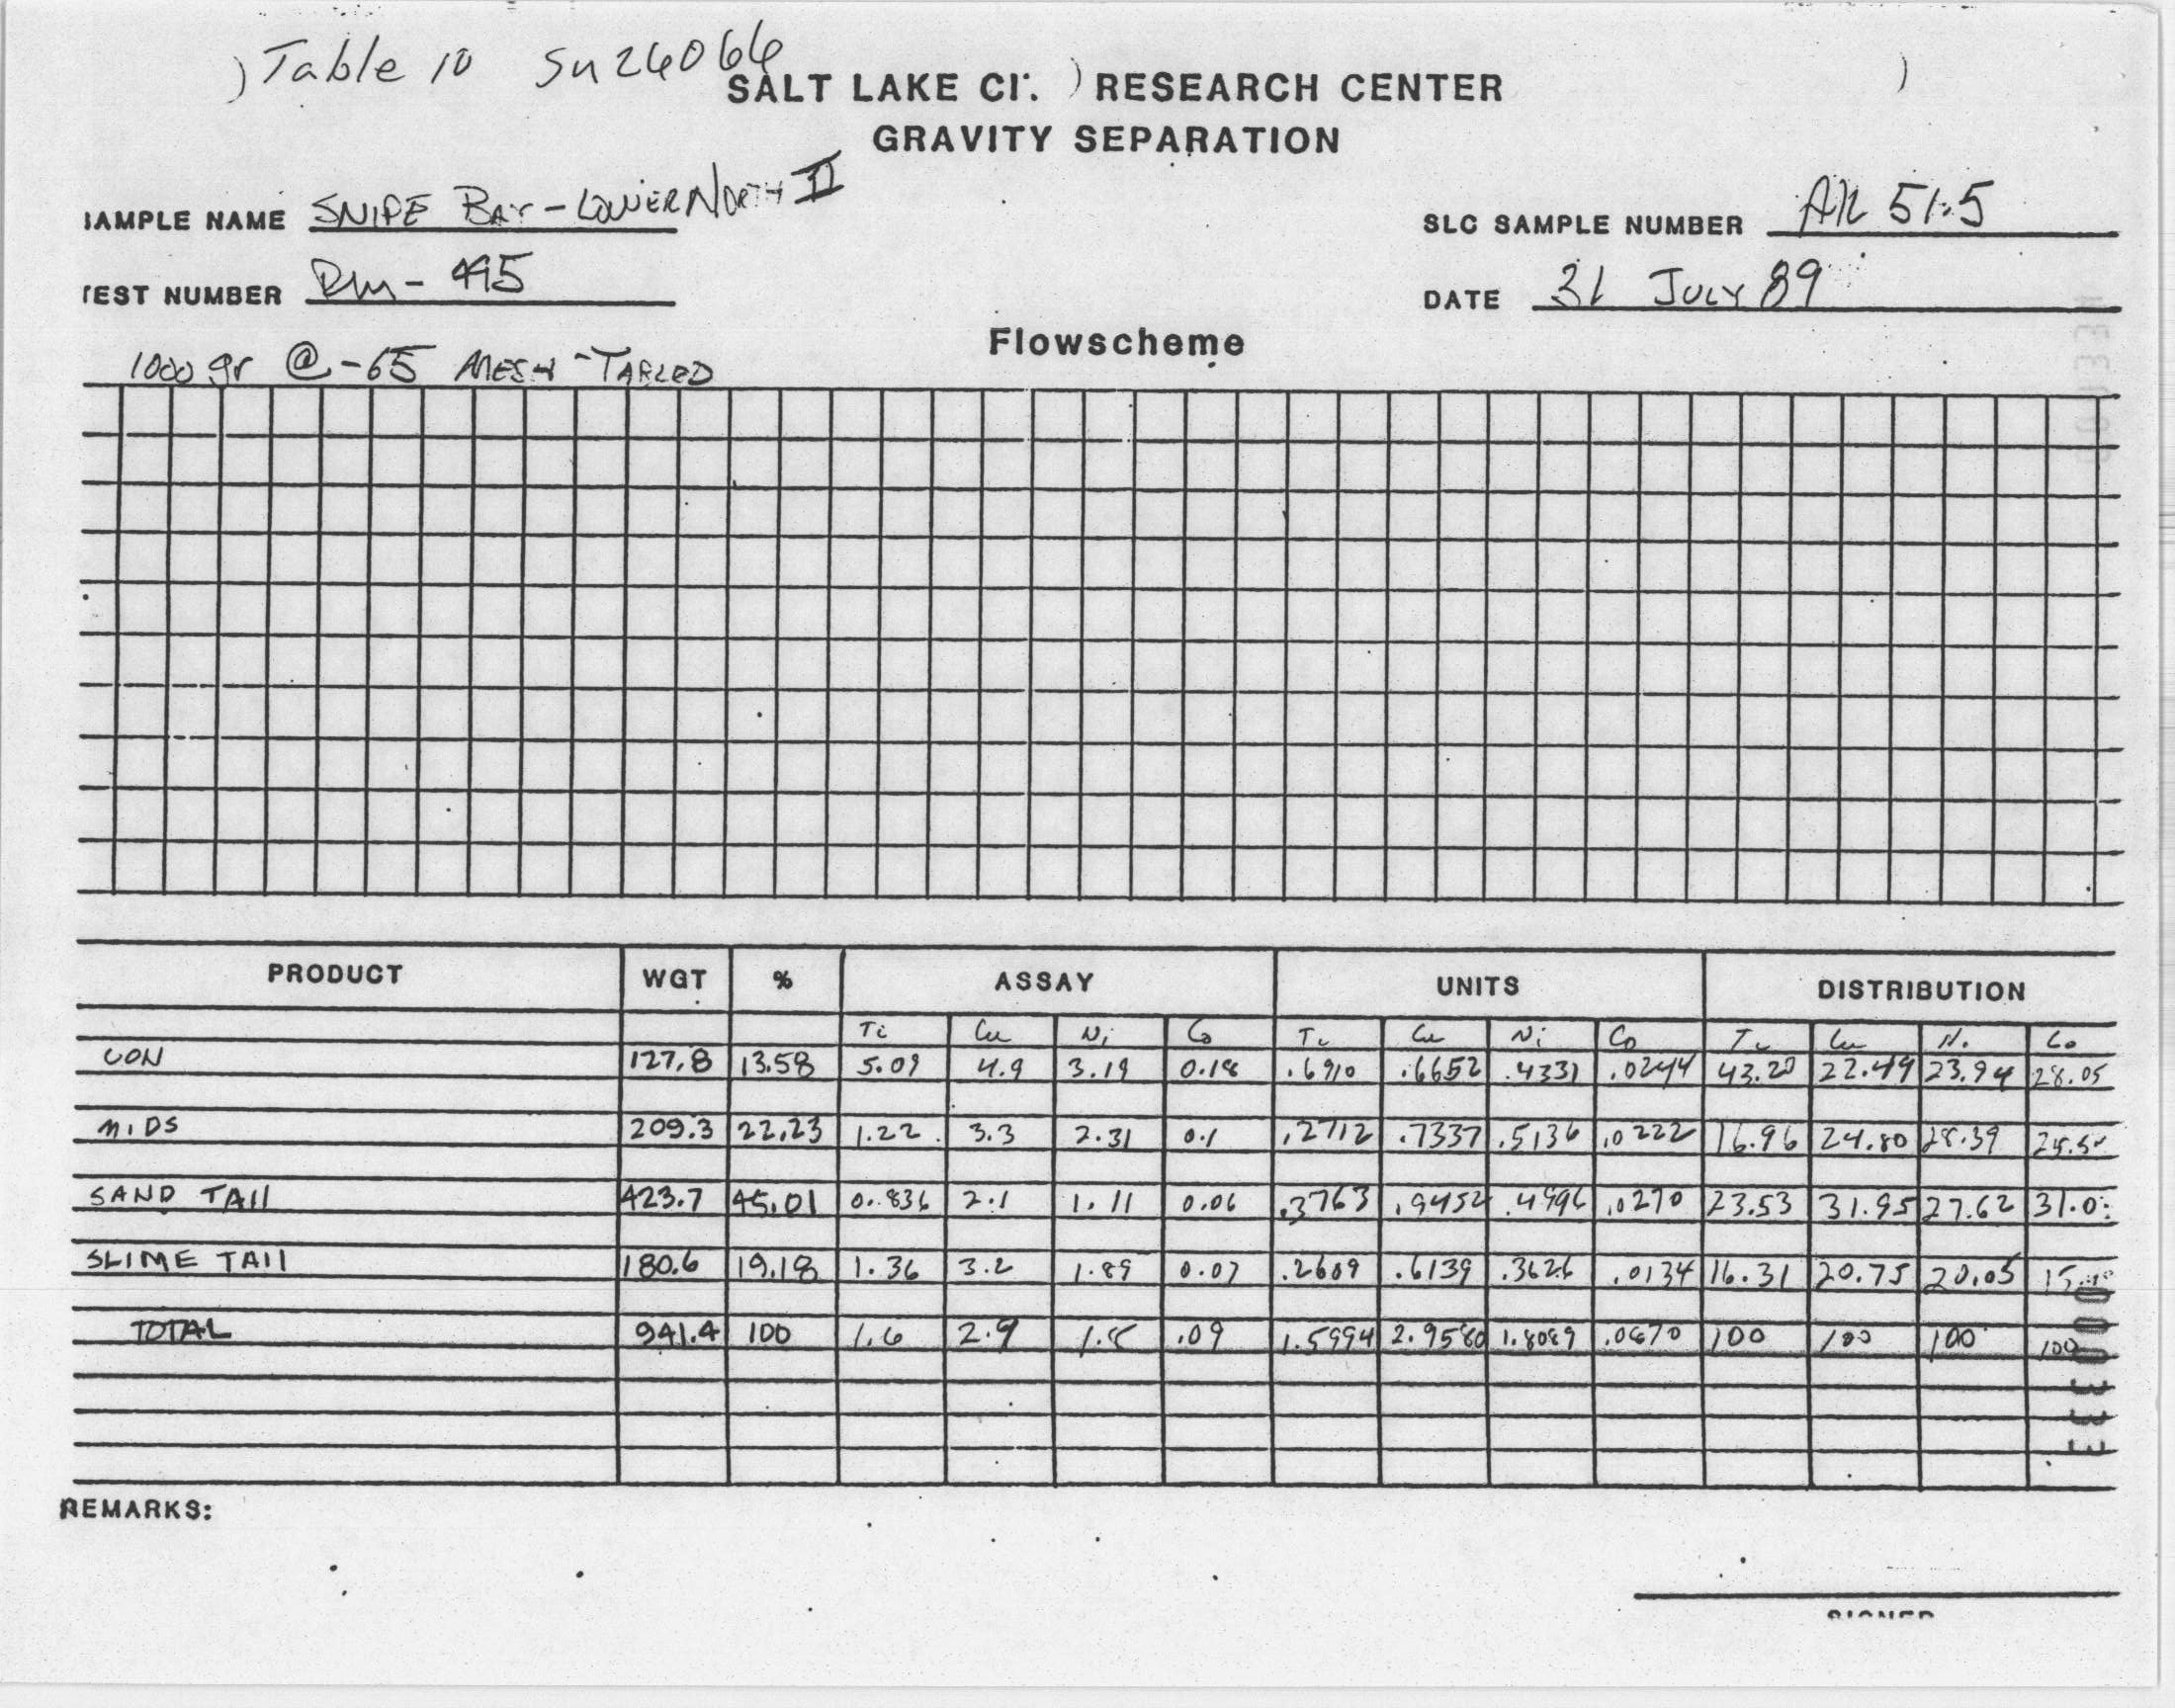 ) Table 10 Sn26066
SALT LAKE CI. ) RESEARCH CENTER )
GRAVITY SEPARATION
SAMPLE NAME SNIPE BAY - LOWER NORTH II
SLC SAMPLE NUMBER
TEST NUMBER Rm - 495
DATE 31 JULY 89
Flowscheme
1000 gr @ -65 MESH - TABLED
PRODUCT WGT % ASSAY UNITS DISTRIBUTION
Ti Cu Ni Co Ti Cu Ni Co Ti Cu Ni Co
CON 127.8 13.58 5.09 4.9 3.19 0.18 .6910 .6652 .4331 .0244 43.20 22.49 23.94 28.05
MIDS 209.3 22.23 1.22 3.3 2.31 0.1 .2712 .7337 .5136 .0222 16.96 24.80 28.39
SAND TAIL 423.7 45.01 0.836 2.1 1.11 0.06 .3763 .9452 .4996 .0270 23.53 31.95 27.62 31.0
SLIME TAIL 180.6 19.18 1.36 3.2 1.89 0.07 .2609 .6139 .3626 .0134 16.31 20.75 20.05
TOTAL 941.4 100 1.6 2.9 1.8 .09 1.5994 2.9580 1.8089 .0870 100 100 100 100
REMARKS: